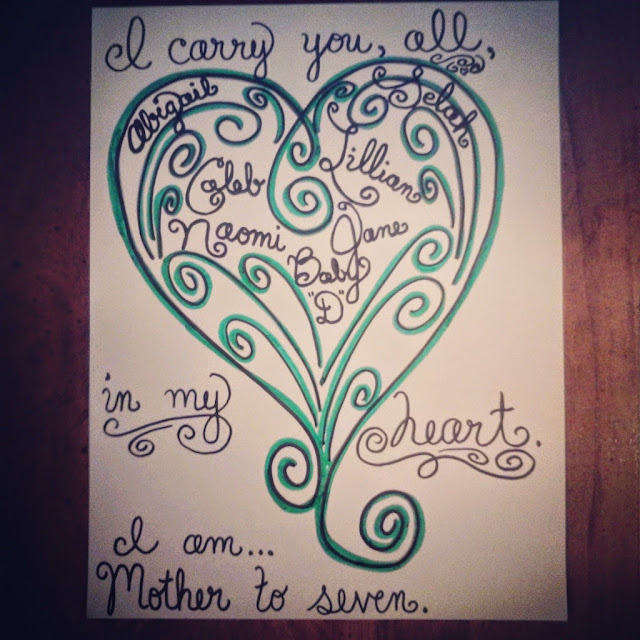 I carry you, all,
Abigail
Selah
Caleb
Lillian
Naomi
Jane
Baby
"D"
in my
heart.
I am...
Mother to seven.